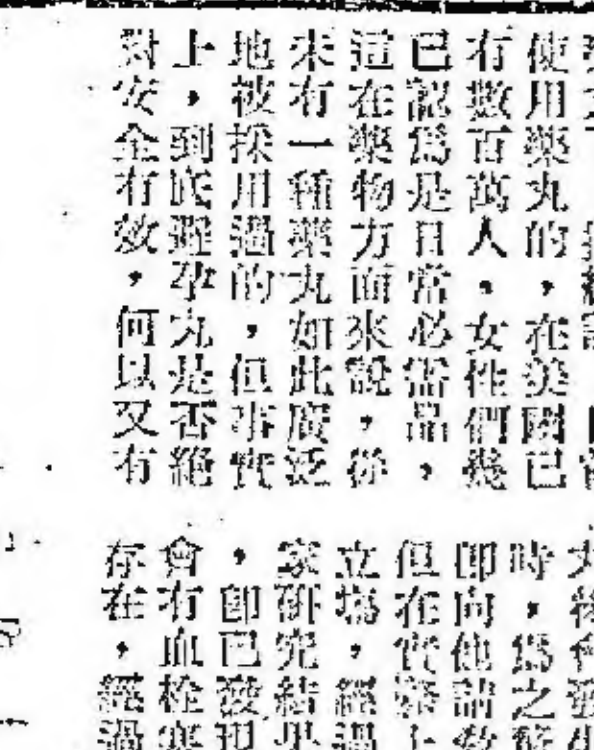 使用藥丸的，在美國已
有數百萬人，女性們幾
已認爲是日常必需品，
這在藥物方面來說，從
未有一種藥丸如此廣泛
地被採用過的，但事實
上，到底避孕丸是否絕
對安全有效，何以又有
時，爲之
即向他請教
但在實際上
立場，經過
家研究結果
，卽已發現
會有血栓塞
存在，經過